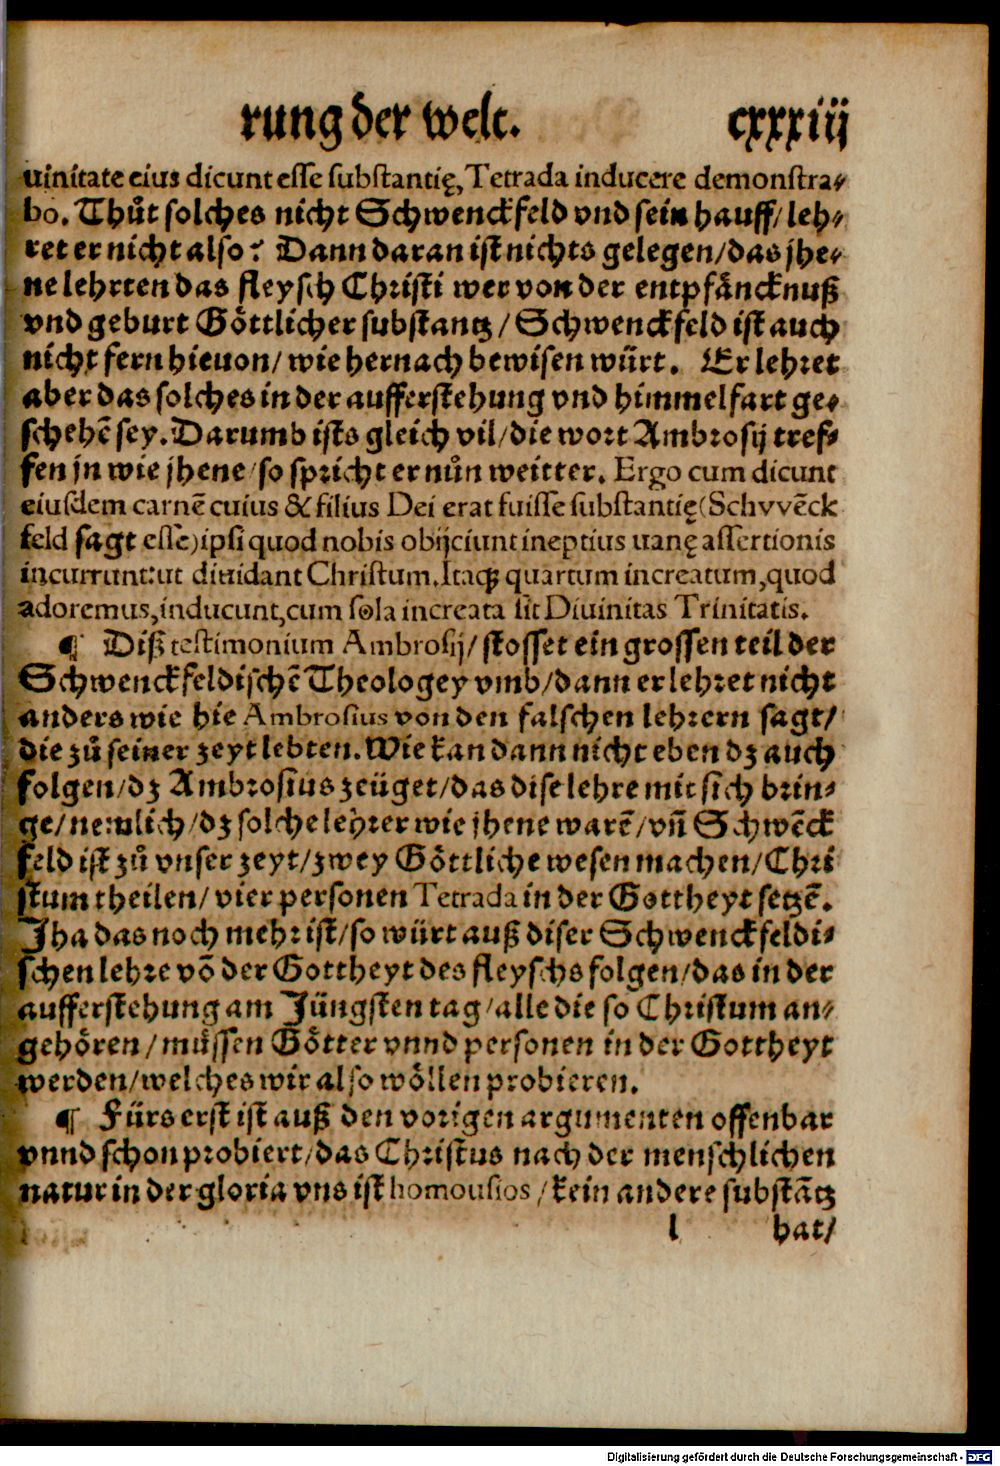 rung der welt. cxxxiij
uinitate eius dicunt esse substantię, Tetrada inducere demonstra⸗
bo. Thůt solches nicht Schwenckfeld vnd sein hauff/ leh⸗
ret er nicht also? Dann daran ist nichts gelegen/ das jhe⸗
ne lehrten das fleysch Christi wer von der entpfäncknuß
vnd geburt Göttlicher substantz/ Schwenckfeld ist auch
nicht fern hieuon/ wie hernach bewisen würt. Er lehret
aber das solches in der aufferstehung vnd himmelfart ge⸗
schehẽ sey. Darumb ists gleich vil/ die wort Ambrosij tref⸗
fen jn wie jhene/ so spricht er nůn weitter. Ergo cum dicunt
eiusdem carnẽ cuius & filius Dei erat fuisse substantię (Schvvẽck
feld sagt esse) ipsi quod nobis obijciunt ineptius uanę assertionis
incurrunt: ut diuidant Christum. Itaq; quartum increatum, quod
adoremus, inducunt, cum sola increata sit Diuinitas Trinitatis.
¶ Diß testimonium Ambrosij/ stosset ein grossen teil der
Schwenckfeldischẽ Theologey vmb/ dann er lehret nicht
anders wie hie Ambrosius von den falschen lehrern sagt/
die zů seiner zeyt lebten. Wie kan dann nicht eben dz auch
folgen/ dz Ambrosius zeüget/ das dise lehre mit sich brin⸗
ge/ nemlich/ dz solche lehrer wie jhene warẽ/ vñ Schwẽck
feld ist zů vnser zeyt/ zwey Göttliche wesen machen/ Chri
stum theilen/ vier personen Tetrada in der Gottheyt setzẽ.
Jha das noch mehr ist/ so würt auß diser Schwenckfeldi⸗
schen lehre võ der Gottheyt des fleyschs folgen/ das in der
aufferstehung am Jüngsten tag/ alle die so Christum an⸗
gehören/ müssen Götter vnnd personen in der Gottheyt
werden/ welches wir also wöllen probieren.
¶ Fürs erst ist auß den vorigen argumenten offenbar
vnnd schon probiert/ das Christus nach der menschlichen
natur in der gloria vns ist homousios/ kein andere substãtz
l hat/
Digitalisierung gefördert durch die Deutsche Forschungsgemeinschaft - DFG